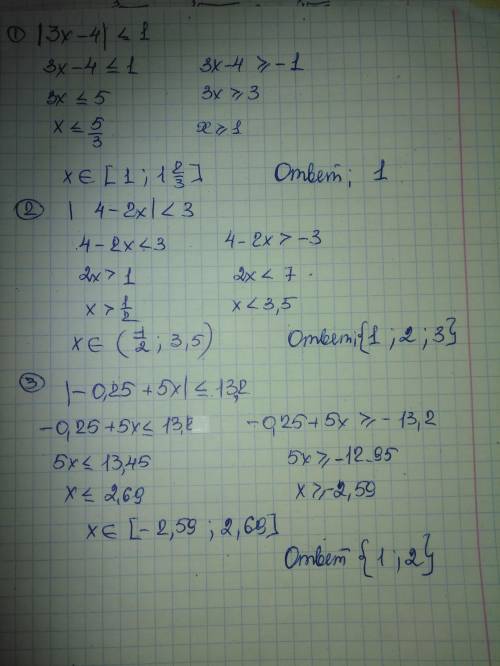 ① |3x-4| ≤ 1
3x-4 ≤ 1 3x-4 ≥ -1
3x ≤ 5 3x ≥ 3
x ≤ 5/3 x ≥ 1
x ∈ [1 ; 1 2/3] Ответ; 1
② | 4-2x| < 3
4-2x < 3 4-2x > -3
2x > 1 2x < 7
x > 1/2 x < 3,5
x ∈ (1/2 ; 3,5) Ответ; {1 ; 2 ; 3}
③ |-0,25 + 5x| ≤ 13,2
-0,25+5x ≤ 13,2 -0,25+5x ≥ -13,2
5x ≤ 13,45 5x ≥ -12.95
x ≤ 2,69 x ≥ -2,59
x ∈ [-2,59 ; 2,69]
Ответ {1 ; 2}